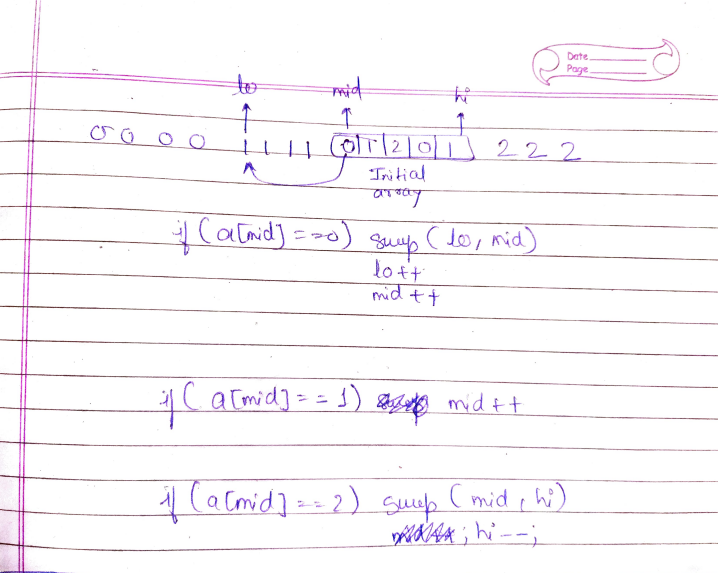 Date
Page
lo mid hi
0 0 0 0 1 1 1 1 0 1 2 0 1 2 2 2
Initial
array
if (a[mid] ==0) swap (lo, mid)
lo++
mid ++
if (a[mid] == 1) mid ++
if (a[mid] == 2) swap (mid, hi)
; hi --;